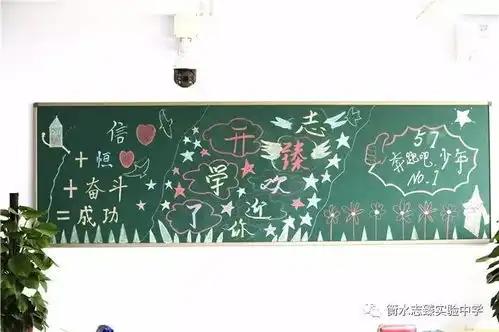 信
+恒
+奋斗
=成功
开学了
志臻欢迎你
57
奔跑吧 少年
NO.1
衡水志臻实验中学